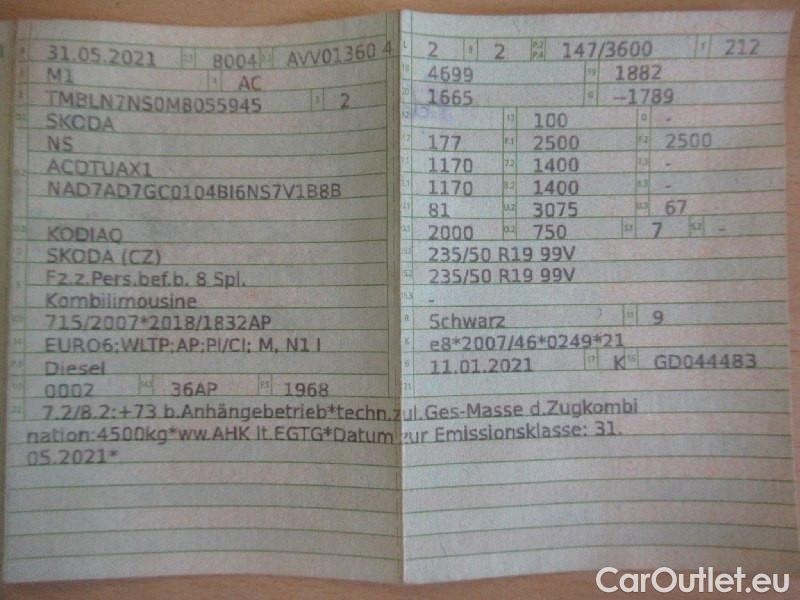 31.05.2021 8004 AVV01360 4
M1 AC
TMBLN7NS0M8055945 2
SKODA
NS
ACDTUAX1
NAD7AD7GC0104BI6NS7V1B8B
KODIAQ
SKODA (CZ)
Fz.z.Pers.bef.b. 8 Spl.
Kombilimousine
715/2007*2018/1832AP
EURO6;WLTP;AP;PI/CI; M, N1 I
Diesel
0002 36AP 1968
L 2 9 2 P.2 P.4 147/3600 T 212
18 4699 19 1882
20 1665 G --1789
13 100 Q -
177 F.1 2500 F.2 2500
1170 7.2 1400 -
1170 8.2 1400 -
81 U.2 3075 U.3 67
2000 O.2 750 S.1 7 S.2 -
235/50 R19 99V
235/50 R19 99V
-
R Schwarz 11 9
K e8*2007/46*0249*21
6 11.01.2021 17 K 16 GD044483
21
7.2/8.2:+73 b.Anhängebetrieb*techn.zul.Ges-Masse d.Zugkombi
nation:4500kg*ww.AHK lt.EGTG*Datum zur Emissionsklasse: 31.
05.2021*
CarOutlet.eu